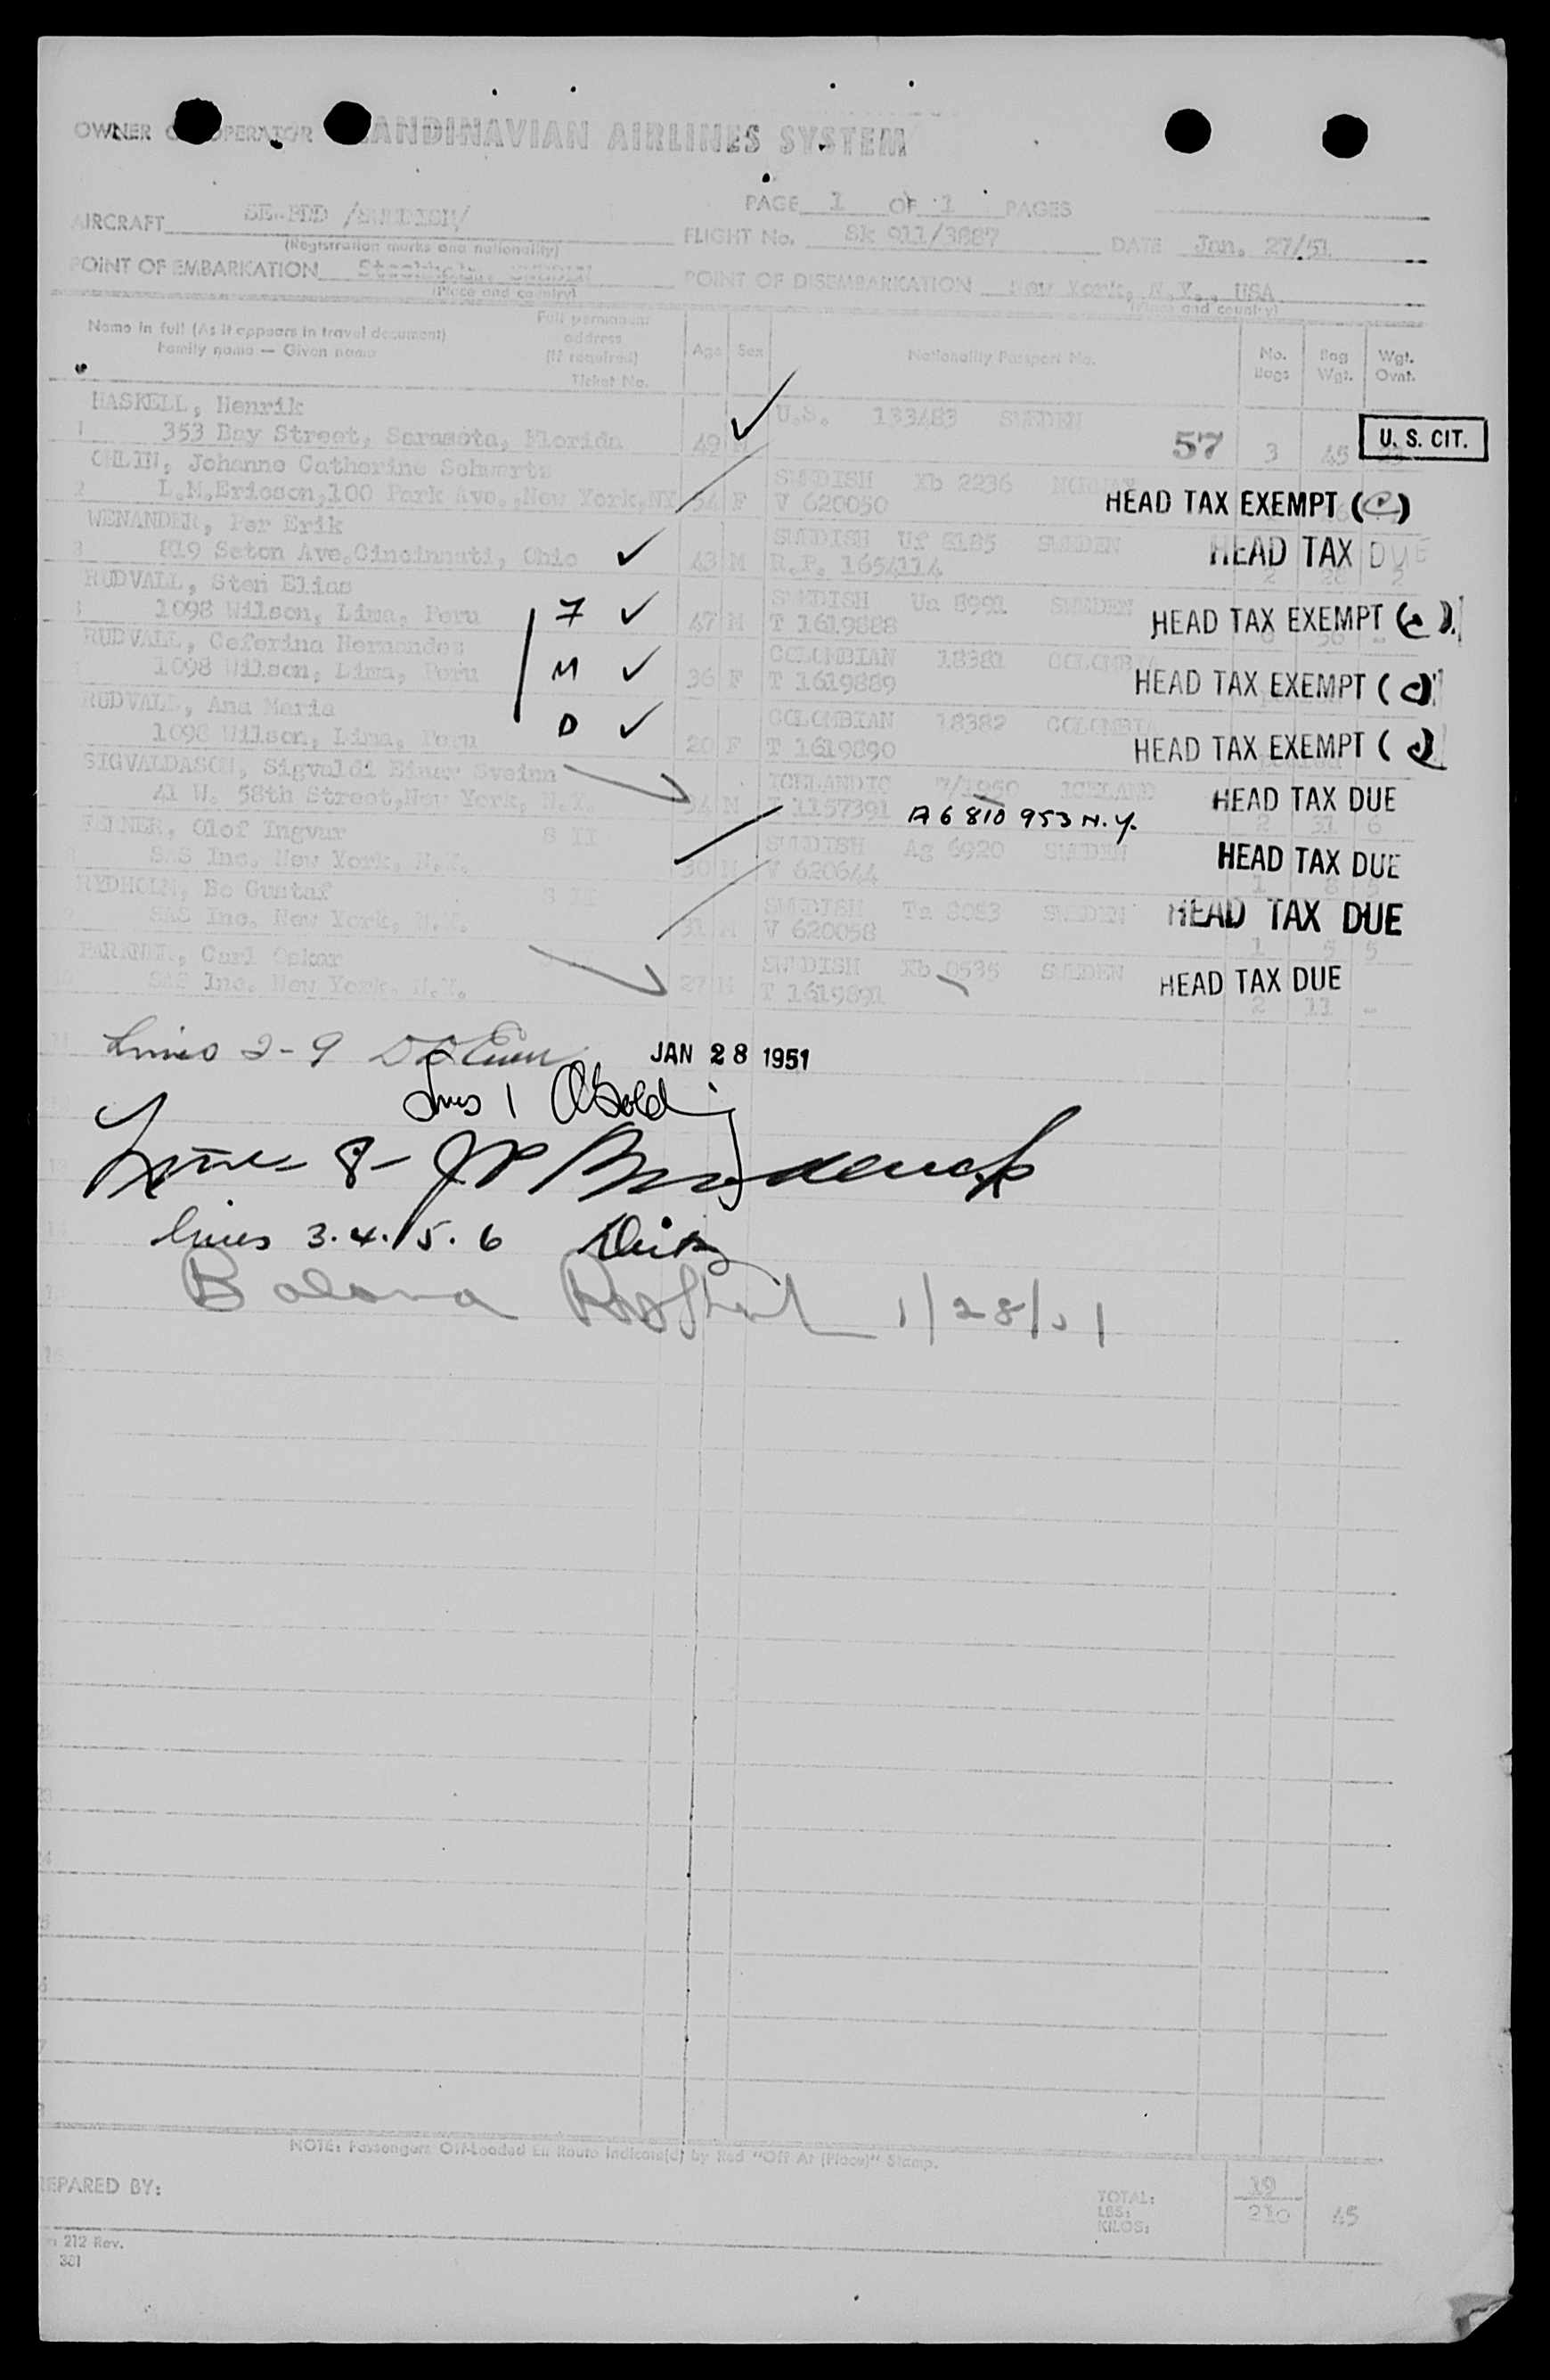 OWNER OPERATOR ANDINAVIAN AIRLINES SYSTEM
PAGE 1 OF 1 PAGES
AIRCRAFT
(Registration marks and nationality)
FLIGHT No. Sk 911/3887 DATE Jan. 27/51
POINT OF EMBARKATION Stockholm, SWEDEN
(Place and country)
POINT OF DISEMBARKATION New York, N.Y., USA
(Place and country)
Name in full (As it appears in travel document)
Family name — Given name
Full permanent address (If required)
Ticket No.
Age Sex Nationality Passport No. No. Bags Bag Wgt. Wgt. Ovnt.
HASKELL, Henrik U.S. 133483 SWEDEN
1 353 Bay Street, Sarasota, Florida 49 M 57 3 45 U. S. CIT.
OHLIN, Johanne Catherine Schwartz SWEDISH Xb 2236 NORWAY
2 L.M.Ericson,100 Park Ave.,New York,NY 54 F V 620050 HEAD TAX EXEMPT (C)
WENANDER, Per Erik SWEDISH Uf 8185 SWEDEN
3 819 Seton Ave.Cincinnati, Ohio 43 M R.P. 1654114 HEAD TAX DUE
RUDVALL, Sten Elias SWEDISH Ua 8991 SWEDEN
1098 Wilson, Lima, Peru 7 47 M T 1619888 HEAD TAX EXEMPT (C)
RUDVALL, Ceferina Hernandez COLOMBIAN 18381 COLOMBIA
1098 Wilson, Lima, Peru M 36 F T 1619889 HEAD TAX EXEMPT (C)
RUDVALL, Ana Maria COLOMBIAN 18382 COLOMBIA
1098 Wilson, Lima, Peru D 20 F T 1619890 HEAD TAX EXEMPT (C)
SIGVALDASON, Sigvaldi Einar Sveinn ICELANDIC 7/1950 ICELAND
41 W. 58th Street,New York, N.Y. M T 1157391 A6 810 953 N.Y. HEAD TAX DUE
2 31 6
Olof Ingvar S II SWEDISH Ag 6920 SWEDEN
SAS Inc. New York, N.Y. 30 M V 620644 HEAD TAX DUE
RYDHOLM, Bo Gustaf S II SWEDISH Ta 8083 SWEDEN
SAS Inc. New York, N.Y. 31 M V 620058 HEAD TAX DUE
1 5 5
Carl Oskar SWEDISH Xb 0535 SWEDEN
SAS Inc. New York, N.Y. 27 M T 1619891 HEAD TAX DUE
2 11 -
Lines 2-9 JAN 28 1951
Lines 1
Line 8-
lines 3.4.5.6
1/28/51
NOTE: Passengers Off-Loaded En Route Indicate(d) by Red "Off At (Place)" Stamp.
EPARED BY:
TOTAL: 19
LBS:
KILOS: 210 45
212 Rev.
381